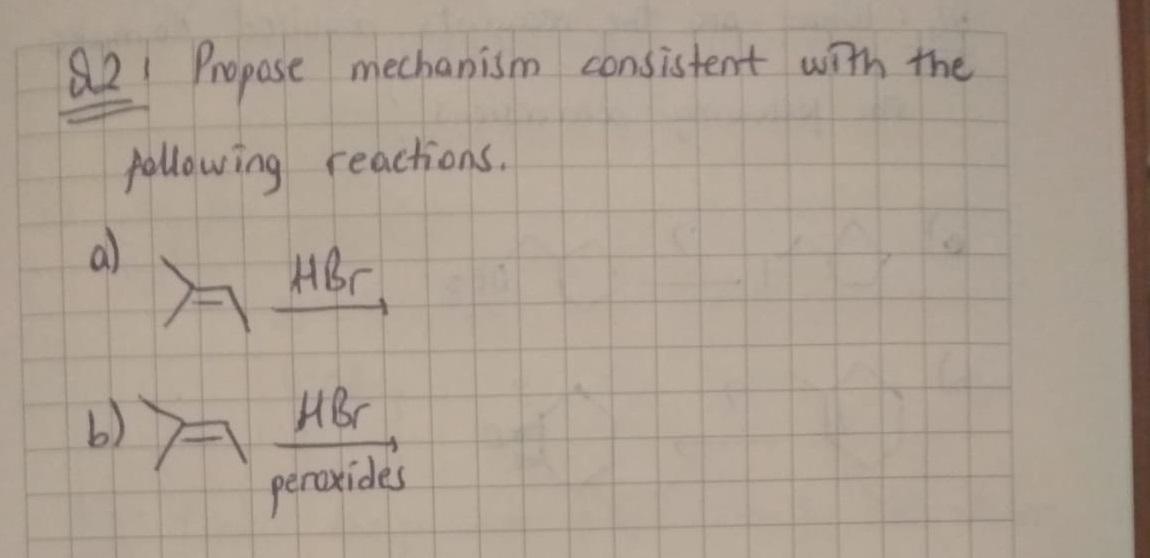 Q2! Propose mechanism consistent with the
following reactions.
a) HBr
b) HBr
peroxides